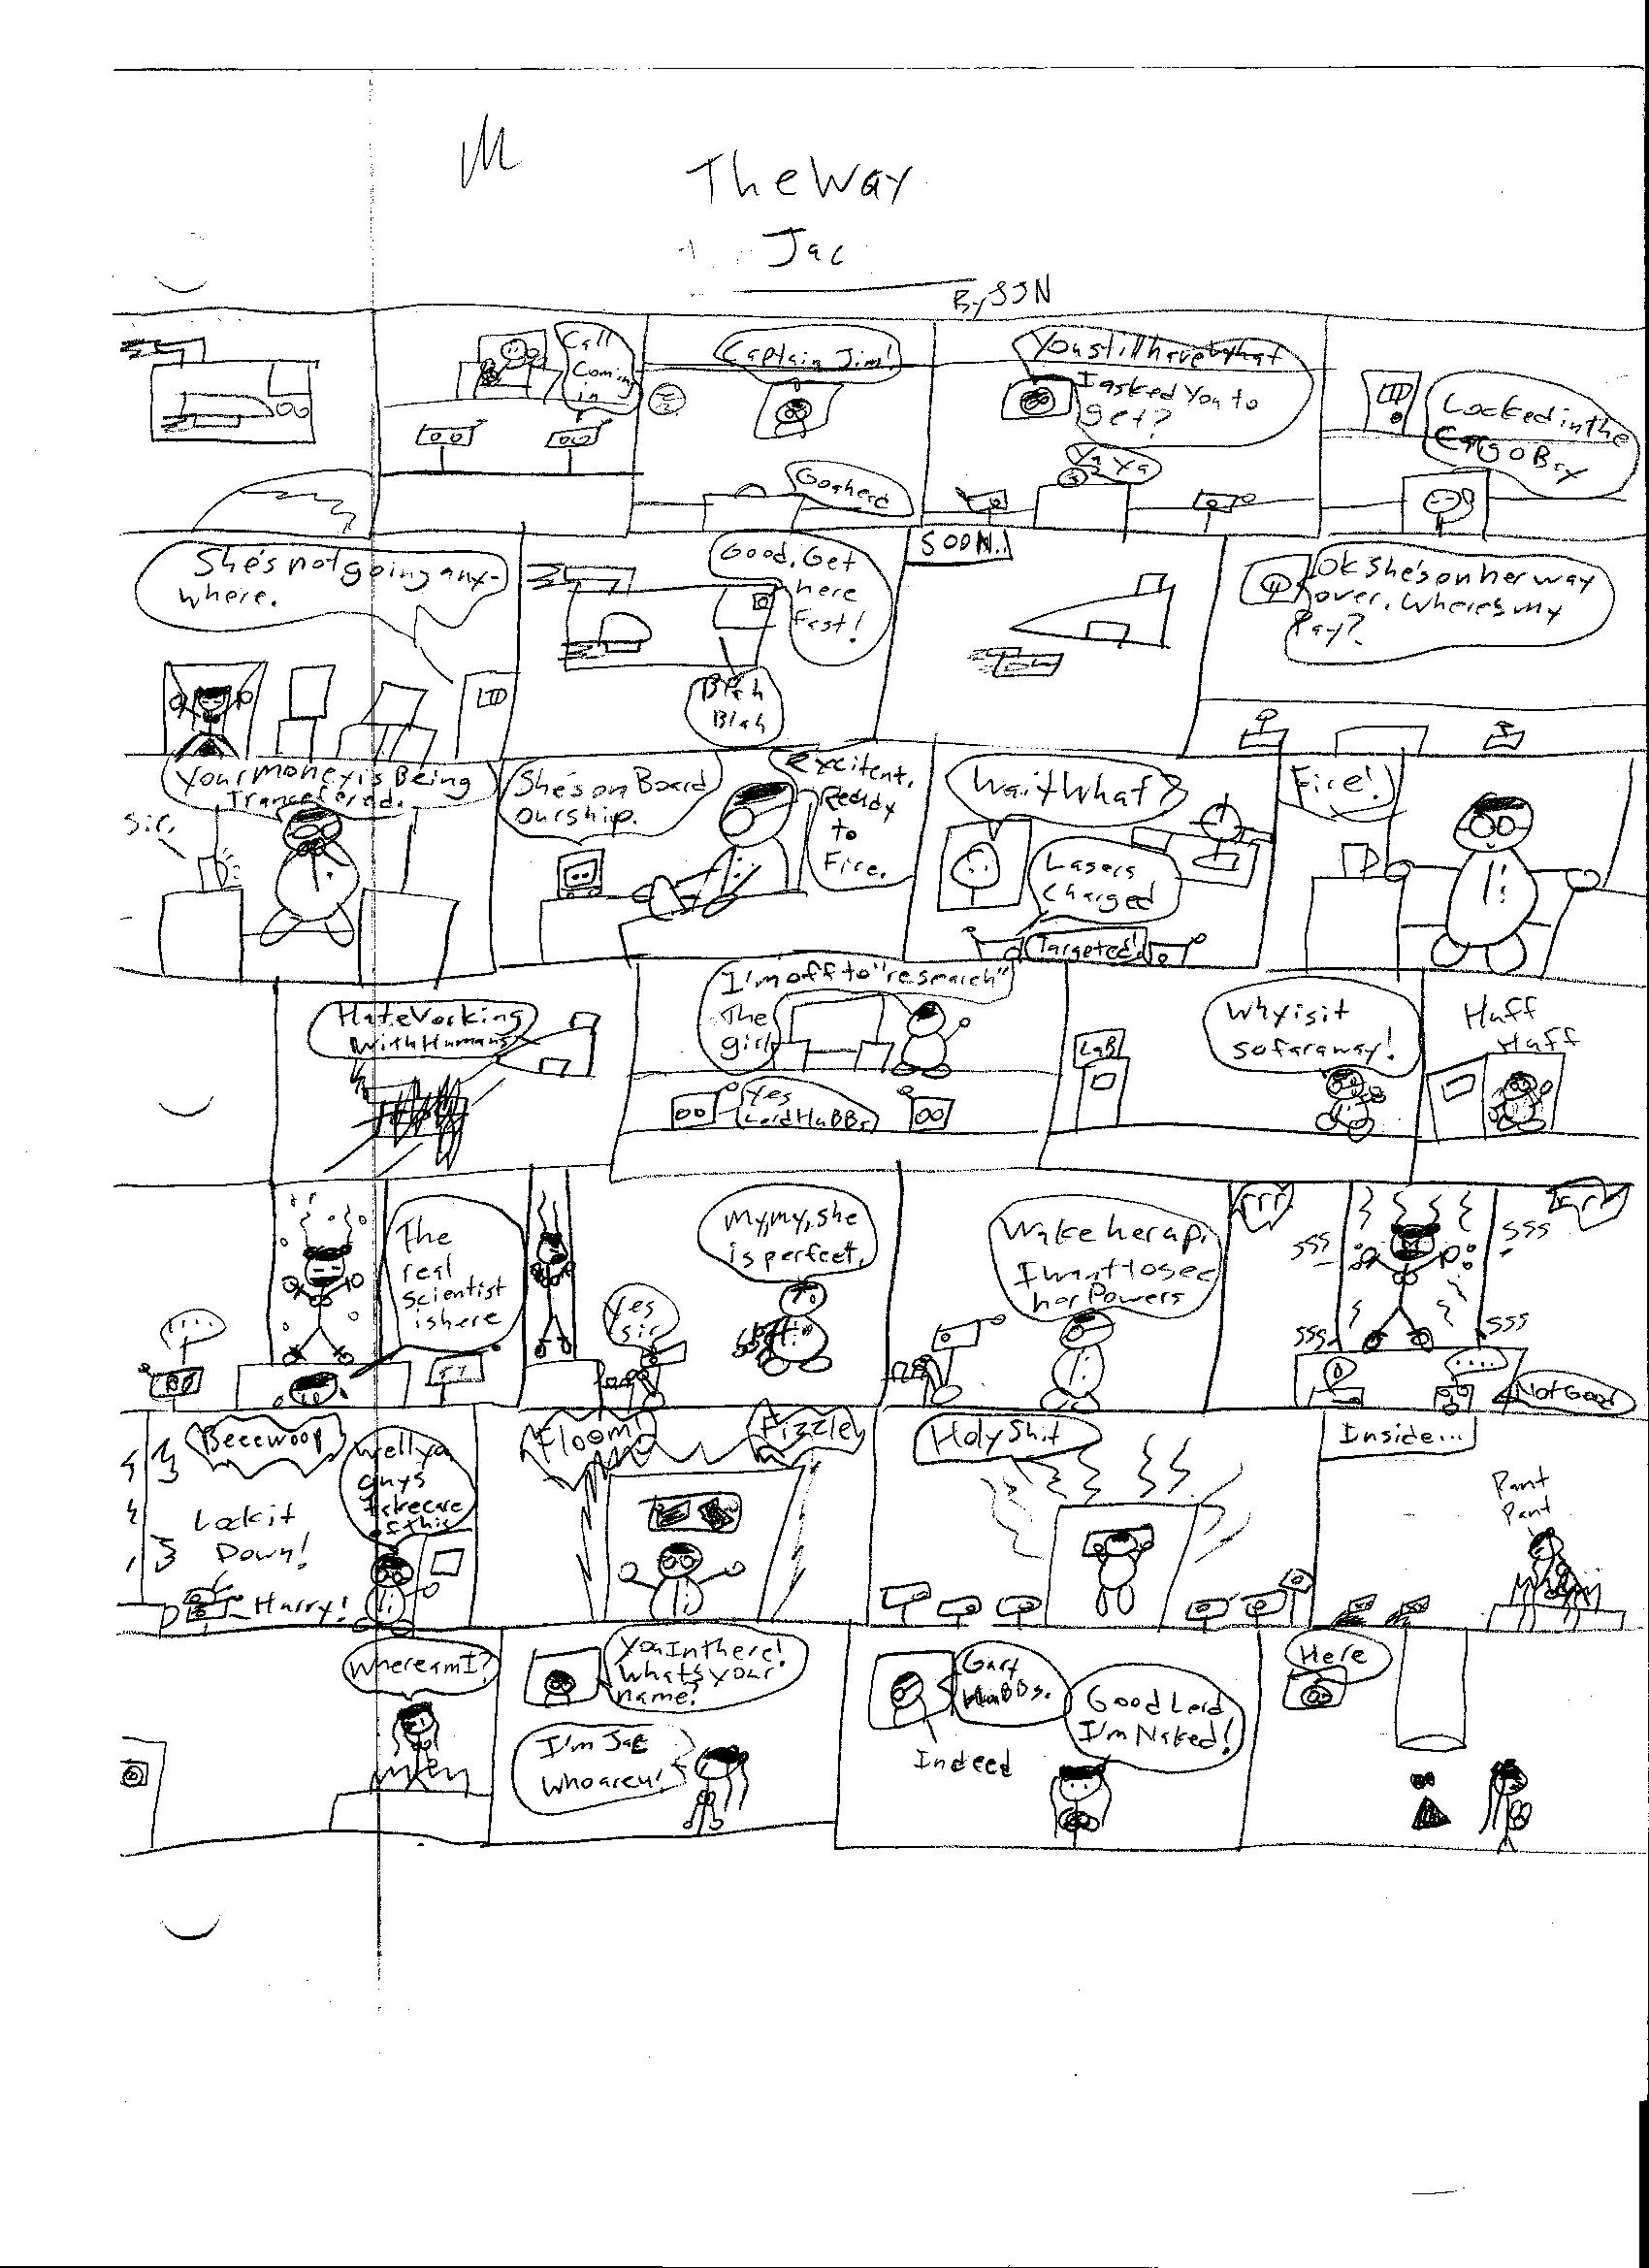 The Way
Jac
By SJN
Call
Coming
in
Captain Jim!
Goaherd
You still have what
I asked You to
get?
Ya Ya
Locked in the
Cargo Bay
She's not going any-
where.
Good. Get
here
fast!
Blah
Blah
SOON..
Ok she's on her way
over. Where's my
Pay?
Your money is Being
Trancefered.
Sir,
She's on Board
our ship.
Excitent.
Ready
to
Fire.
Wait What?
Lasers
Charged
Targeted!
Fire!
Hate Vorking
With Humans
I'm off to "research"
The
girl
Yes
Lord HuBBs
LaB
Why is it
so far away!
Huff
Huff
The
real
scientist
is here
Yes
sir
My, my, she
is perfect.
Wake her up,
I want to see
her Powers
rrr
sss
sss
sss
sss
Not Good
Beeewoop
Lock it
Down!
Harry!
Well ya
guys
take care
of this
Floom!
Fizzle
Holy Shit
Inside...
Pant
Pant
Where am I?
You In there!
What's your
name?
I'm Jac
who are u!
Gary
HuBBs.
Indeed
Good Lord
I'm Naked!
Here